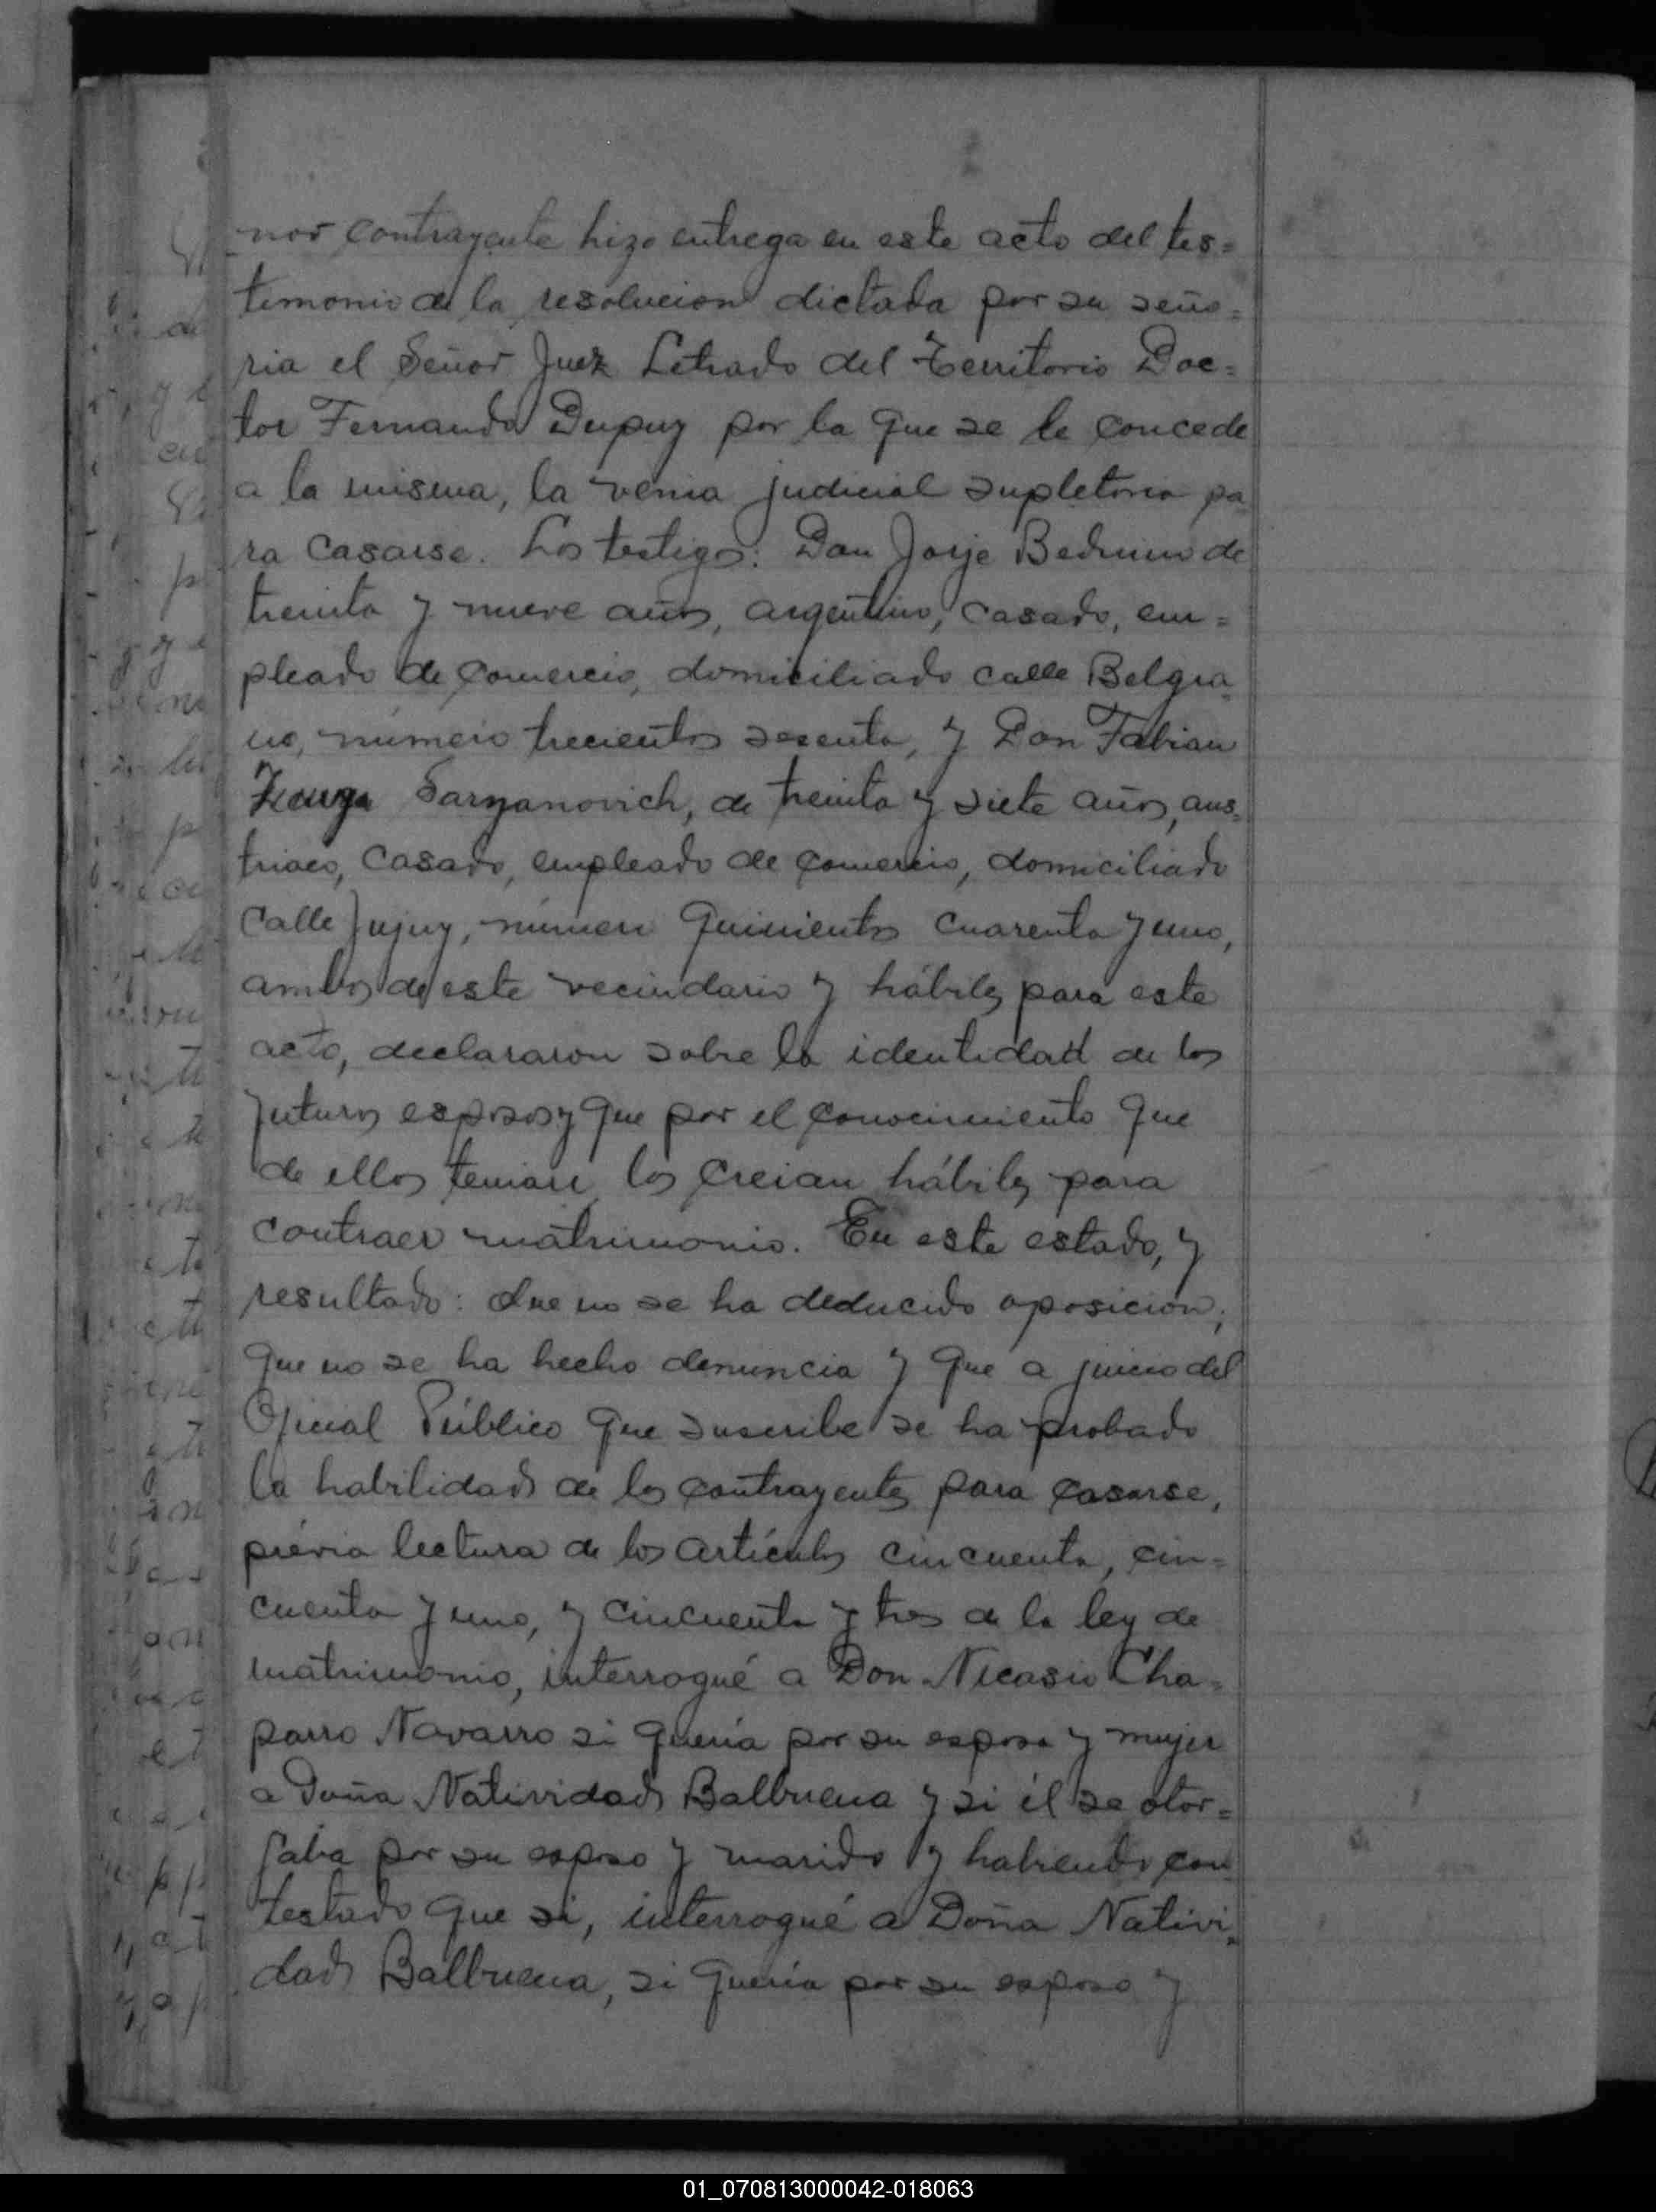 nor contrayente hizo entrega en este acto del tes=
timonio de la resolucion dictada por su seño=
ria el Señor Juez Letrado del Territorio Doc=
tor Fernando Dupuy por la que se le concede
a la misma, la venia judicial supletoria pa
ra casarse. Los testigos: Don Jorje de
treinta y nueve años, argentino, casado, em=
pleado de comercio, domiciliado calle Belgra=
no, número trecientos sesenta, y Don Fabian
Saryanovich, de treinta y siete años, aus=
triaco, casado, empleado de comercio, domiciliado
calle Jujuy, número quinientos cuarenta y uno,
ambos de este vecindario y hábiles para este
acto, declararon sobre la identidad de los
futuros esposos y que por el conocimiento que
de ellos tenian los creian hábiles para
contraer matrimonio. En este estado, y
resultado: Que no se ha deducido oposicion;
que no se ha hecho denuncia y que a juicio del
Oficial Público que suscribe se ha probado
la habilidad de los contrayentes para casarse,
prévia lectura de los artículos cincuenta, cin=
cuenta y uno, y cincuenta y tres de la ley de
matrimonio, interrogué a Don Nicasio Cha=
parro Navarro si quería por su esposa y mujer
a Doña Natividad Balbuena y si él se otor=
gaba por su esposo y marido y habiendo con
testado que si, interrogué a Doña Nativi=
dad Balbuena, si quería por su esposo y
01_070813000042-018063